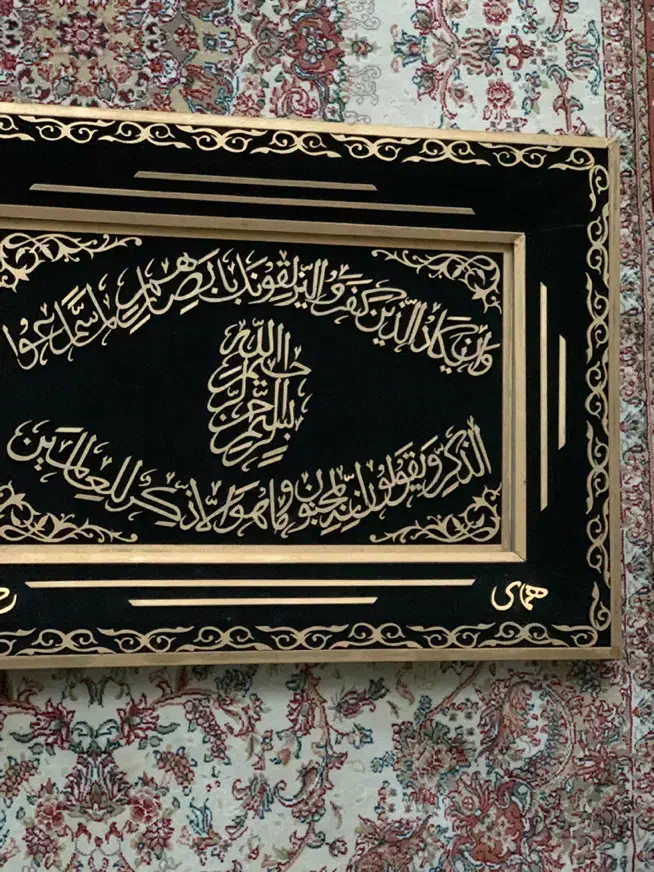 وان یکاد الذین کفروا لیزلقونک بابصارهم لما سمعوا
بسم الله الرحمن الرحیم
الذکر و یقولون انه لمجنون و ما هو الا ذکر للعالمین
همای